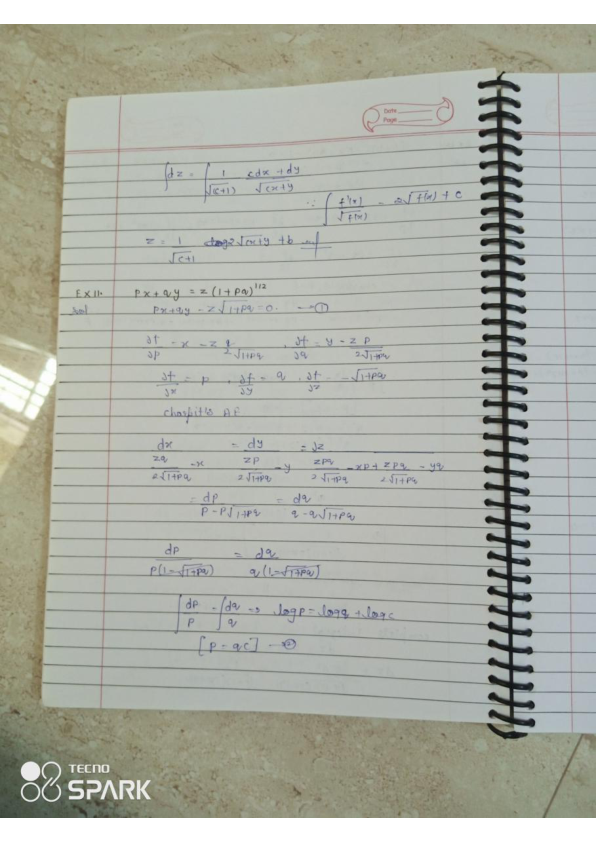 Date
Page
∫dz = ∫ 1/√(c+1) (cdx + dy)/√(cx+y)
∵ ∫ f'(x)/√f(x) = 2√f(x) + c
z = 1/√(c+1) 2√(cx+y) + b
EX 11. px + qy = z(1+pq)^1/2
px+qy - z√(1+pq) = 0. → ①
∂f/∂p = x - z q/2√(1+pq) , ∂f/∂q = y - z p/2√(1+pq)
∂f/∂x = p , ∂f/∂y = q , ∂f/∂z = -√(1+pq)
charpit's AE
dx/(zq/2√(1+pq) - x) = dy/(zp/2√(1+pq) - y) = dz/(zpq/2√(1+pq) - xp + zpq/2√(1+pq) - yq)
= dp/(p - p√(1+pq)) = dq/(q - q√(1+pq))
dp/p(1-√(1+pq)) = dq/q(1-√(1+pq))
∫dp/p = ∫dq/q ⇒ log p = log q + log c
[p = qc] → ②
TECNO
SPARK